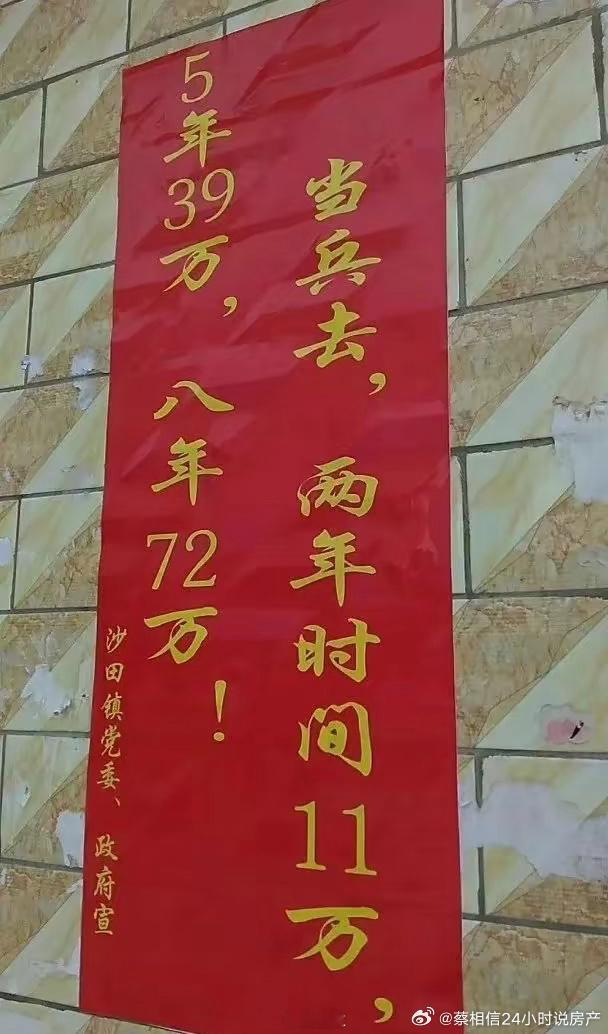 当兵去，两年时间11万，
5年39万，八年72万！
沙田镇党委、政府宣
@蔡相信24小时说房产